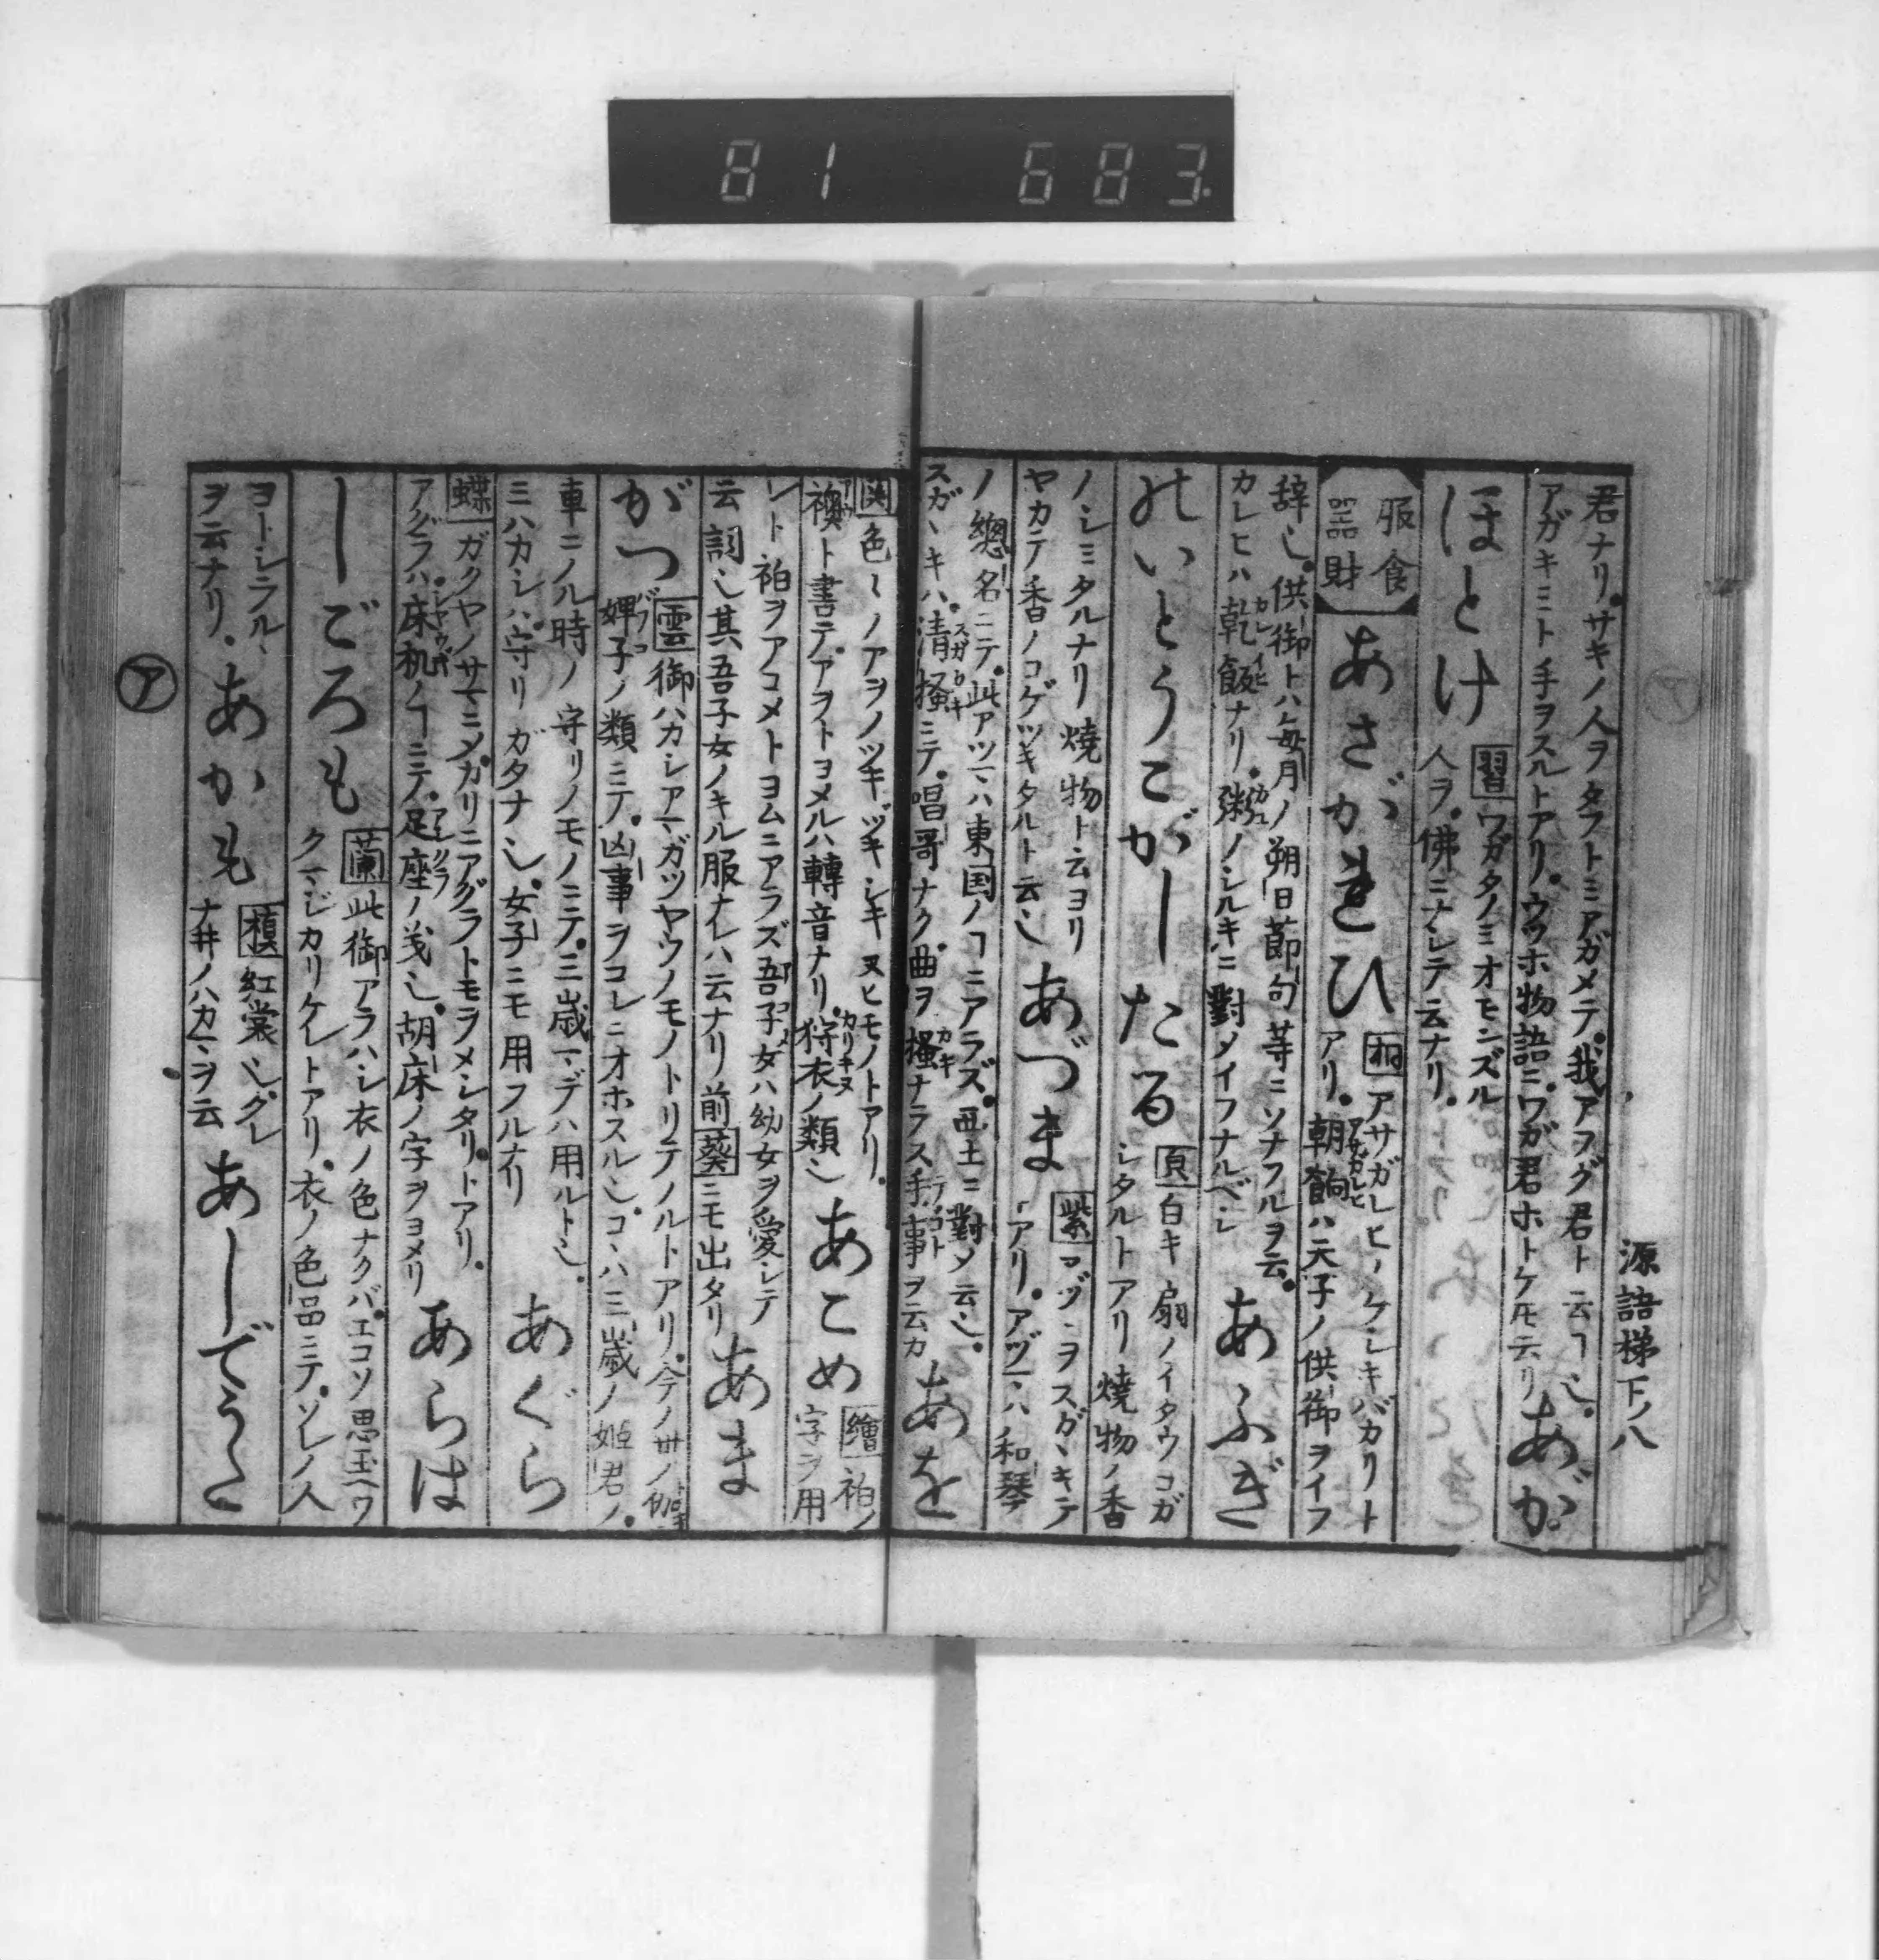 81 683
源語梯下ノ八
君ナリ。サキノ人ヲタフトミアガメテ。我アフグ君ト云ヿ也。
アガキミト手ヲスルトアリ。ウツホ物語ニ。ワガ君ホトケトモ云リ
あが
ほとけ
習 ワガタノミオモンズル
人ヲ。佛ミナシテ云ナリ。
服食
器財
あさがれひ
桐 アサガレヒノケシキバカリト
アリ。朝餉ハ天子ノ供御ヲイフ
辞也。供御トハ毎月ノ朔日節句等ニソナフルヲ云。
カレヒハ乾飯ナリ。粥ノシルキニ對メイフナルベシ
あふぎ
のいとうこがしたる
白キ扇ノイタウコガ
シタルトアリ焼物ノ香
ノシミタルナリ焼物ト云ヨリ
ヤカテ香ノコゲツキタルト云也
あづま
紫 アヅマヲスガヽキテ
アリ。アヅマハ和琴
ノ總名ニテ。此アツマハ東国ノヿニアラズ。西土ニ對メ云也。
スガヽキハ。清掻ニテ。唱哥ナク。曲ヲ掻ナラス手事ヲ云カ
あを
色〳〵ノアヲノツキヅキシキヌヒモノトアリ。
襖ト書テ。アヲトヨメルハ轉音ナリ。狩衣ノ類也
あこめ
繪 袙ノ
字ヲ用
レト袙ヲアコメトヨムニアラズ吾子女ハ幼女ヲ愛シテ
云詞也其吾子女ノキル服ナレハ云ナリ前葵ニモ出タリ
あま
がつ
雲 御ハカシアマガツヤウノモノトリテノルトアリ。今ノ世ノ伽
婢子ノ類ニテ。凶事ヲコレニオホスル也。コヽハ三歳ノ姫君ノ
車ニノル時ノ守リノモノニテ。三歳マデハ用ルト也。
ミハカシハ。守リガタナ也。女子ニモ用フルナリ
あぐら
蝶 ガクヤノサマニメ。カリニアグラトモヲメシタリ。トアリ。
アグラハ。床机ノヿニテ。足座ノ義也。胡床ノ字ヲヨメリ
あらは
しごろも
蘭 此御アラハシ衣ノ色ナクバ。エコソ思玉ヘワ
クマジカリケレトアリ。衣ノ色品ニテ。ソレノ人
ヨトシラルヽ
ヲ云ナリ。
あかも
紅裳
ナ井ノハカマヲ云
あしでうた
ア